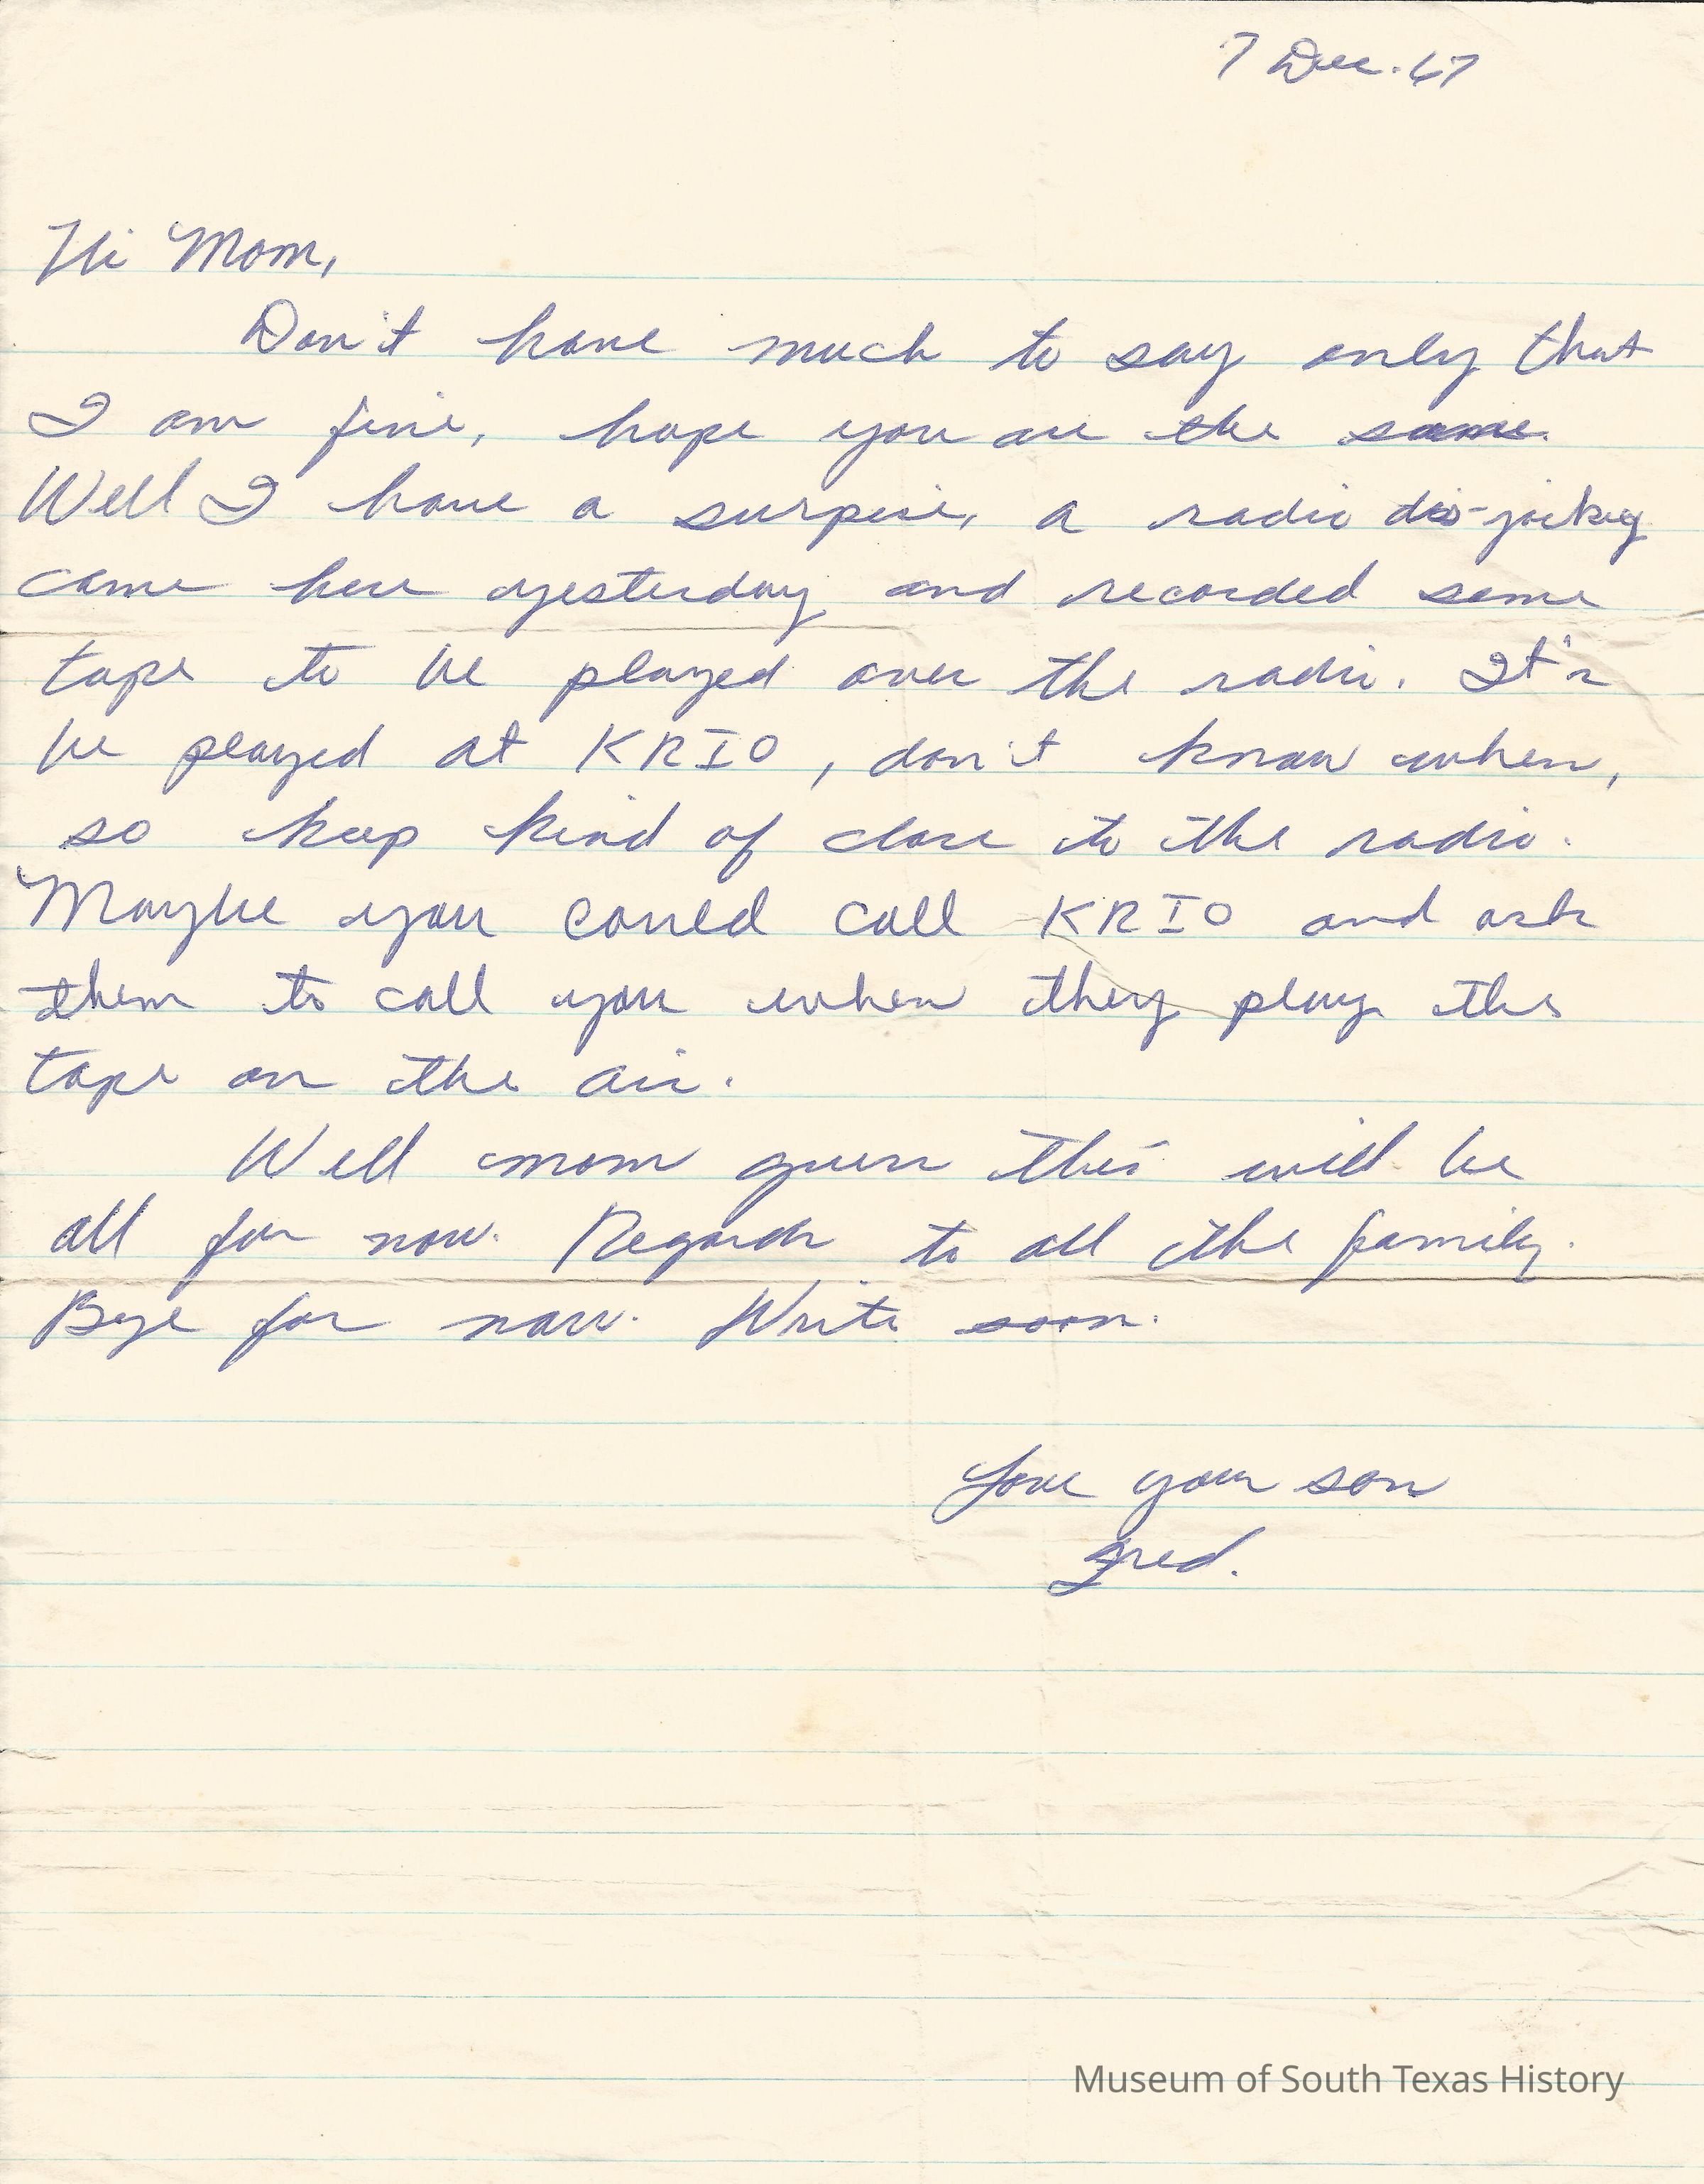 7 Dec. 67
Hi Mom,
Don't have much to say only that
I am fine, hope you are the same.
Well I have a surprise, a radio dis-jockey
came here yesterday and recorded some
tape to be played over the radio. It's
be played at KRIO, don't know when,
so keep kind of close to the radio.
Maybe you could call KRIO and ask
them to call you when they play this
tape on the air.
Well mom guess this will be
all for now. Regards to all the family.
Bye for now. Write soon.
Love your son
Fred.
Museum of South Texas History